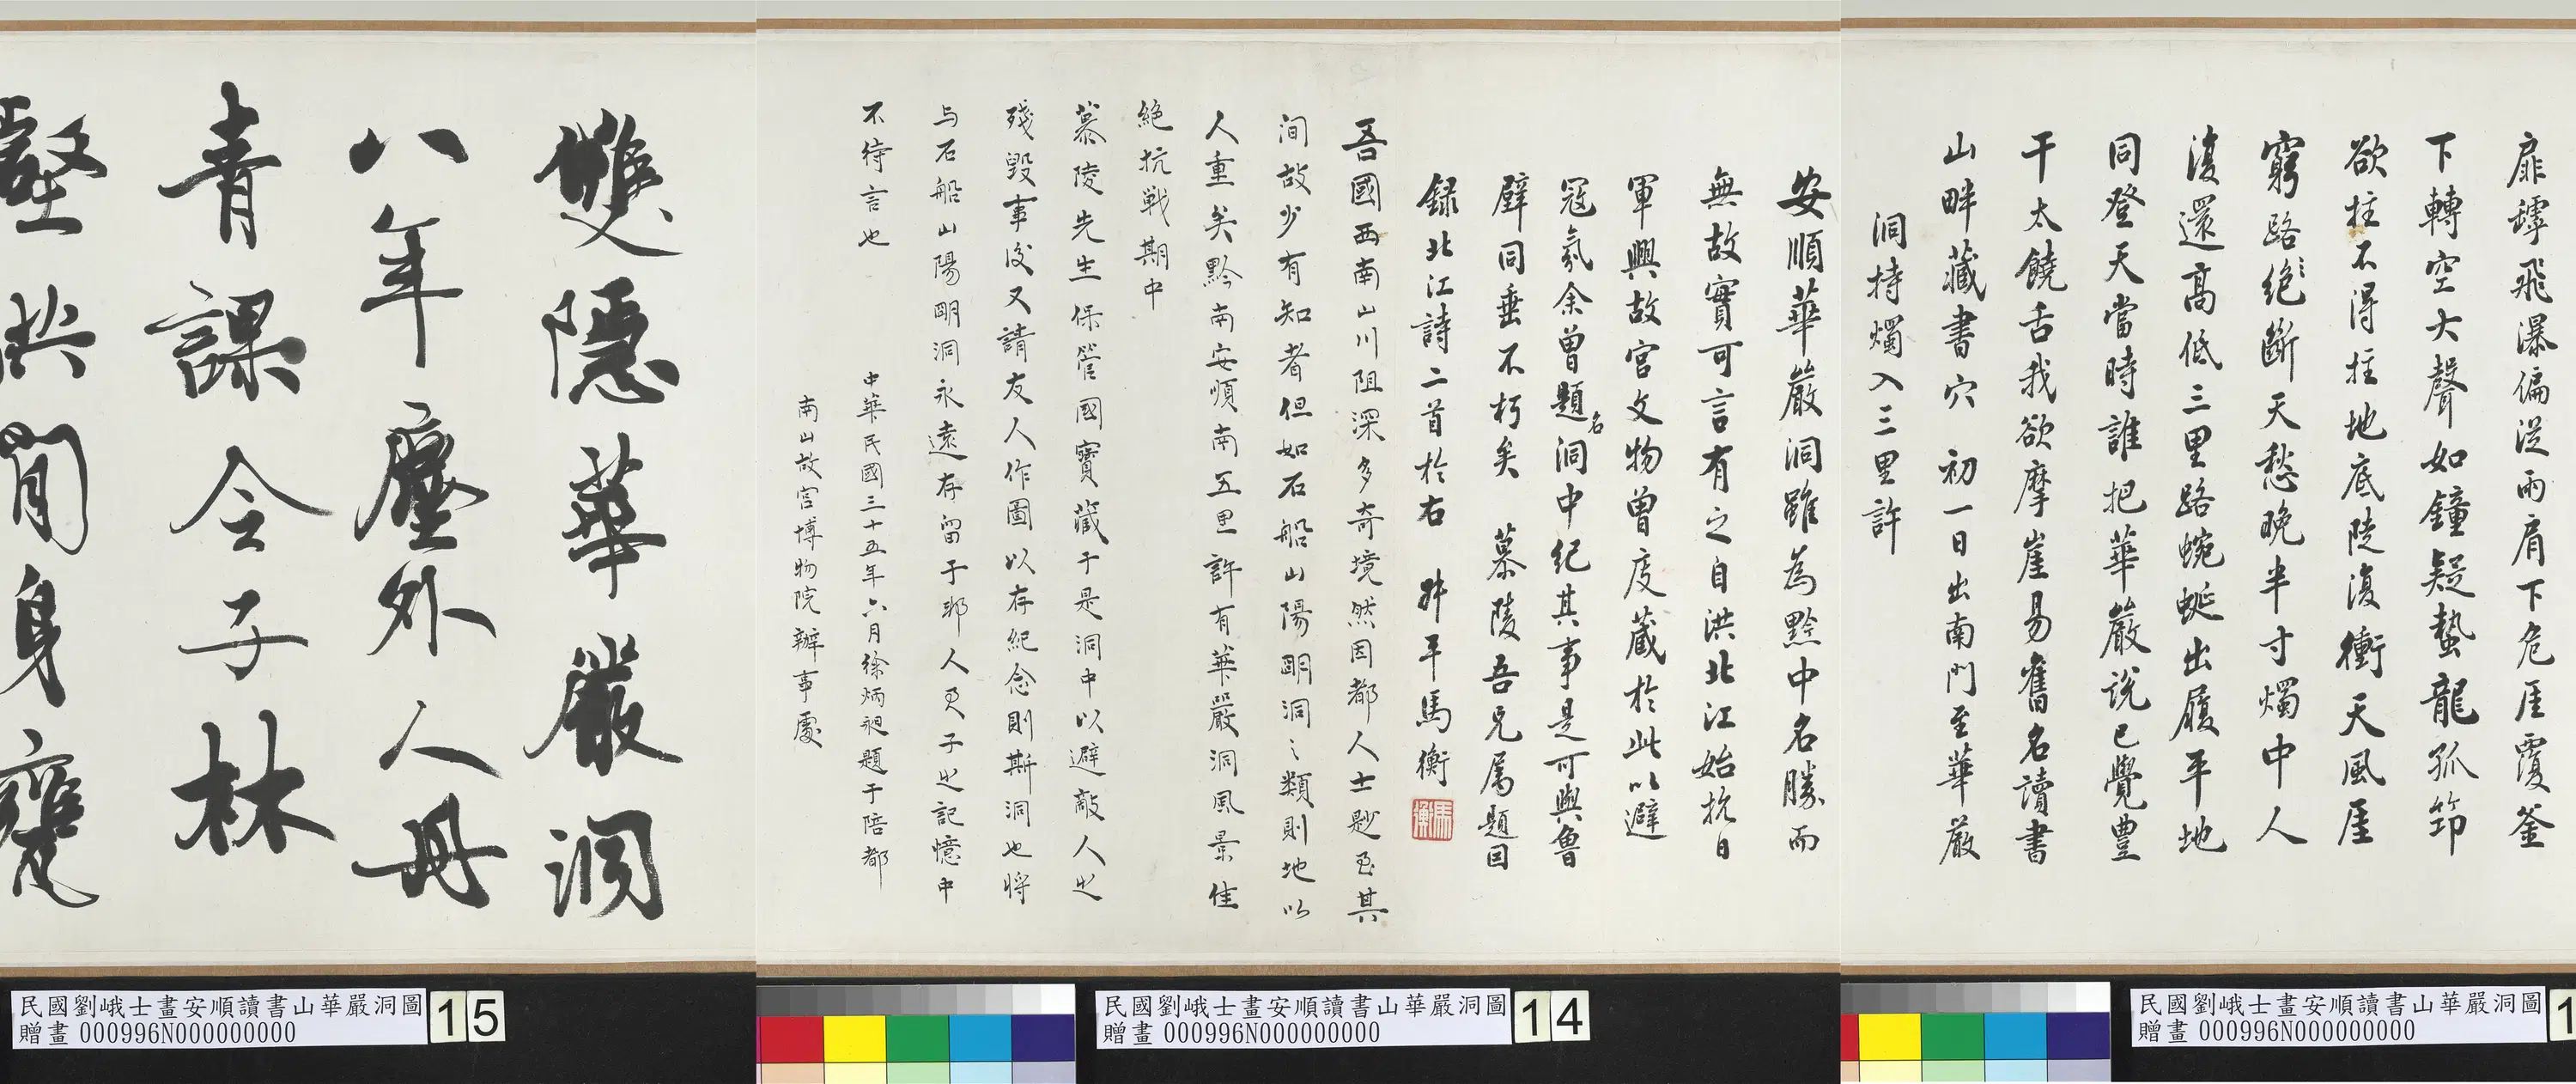 扉罅飛瀑偏從兩肩下危厓覆釜
下轉空大聲如鐘疑蟄龍孤筇
欲拄不得拄地底陡復衝天風厓
窮路絕斷天愁晚半寸燭中人
復還高低三里路蜿蜒出履平地
同登天當時誰把華嚴說已覺豐
干太饒舌我欲摩崖易舊名讀書
山畔藏書穴 初一日出南門至華嚴
洞持燭入三里許
安順華嚴洞雖為黔中名勝而
無故實可言有之自洪北江始抗日
軍興故宮文物曾庋藏於此以避
寇氛余曾題名洞中紀其事是可與魯
壁同垂不朽矣 慕陵吾兄屬題因
錄北江詩二首於右 叔平馬衡
馬衡
吾國西南山川阻深多奇境然因都人士尠至其
間故少有知者但如石船山陽明洞之類則地以
人重矣黔南安順南五里許有華嚴洞風景佳
絕抗戰期中
慕陵先生保管國寶藏于是洞中以避敵人之
殘毀事後又請友人作圖以存紀念則斯洞也將
与石船山陽明洞永遠存留于邦人君子之記憶中
不待言也
中華民國三十五年六月徐炳昶題于陪都
南山故宮博物院辦事處
雙隱華嚴洞
八年塵外人丹
青課令子林
壑共閒身甕
民國劉峨士畫安順讀書山華嚴洞圖
贈畫 000996N000000000
15
民國劉峨士畫安順讀書山華嚴洞圖
贈畫 000996N000000000
14
民國劉峨士畫安順讀書山華嚴洞圖
贈畫 000996N000000000
1